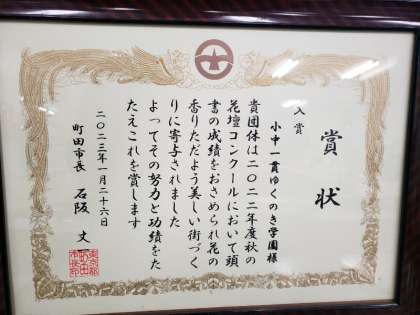 賞状
入賞
小中一貫ゆくのき学園様
貴団体は二〇二二年度秋の
花壇コンクールにおいて頭
書の成績をおさめられ花の
香りただよう美しい街づく
りに寄与されました
よってその努力と功績をた
たえこれを賞します
二〇二三年一月二十六日
町田市長 石阪丈一